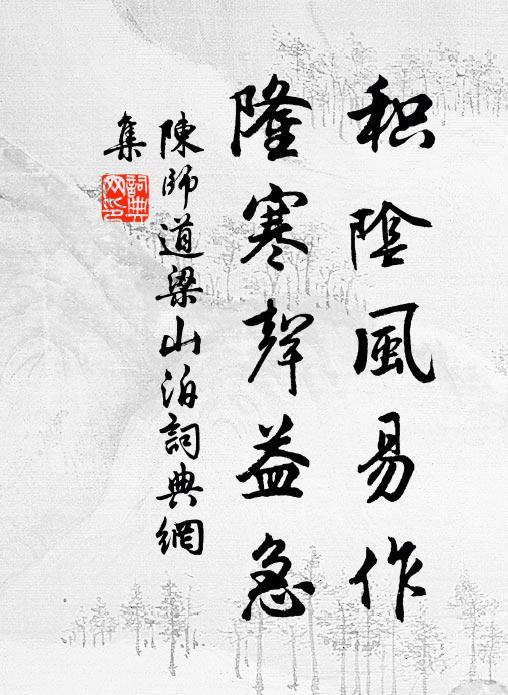 积陰風易作
隆寒聲益急
陳師道梁山泊詞典網
集
詞典网印